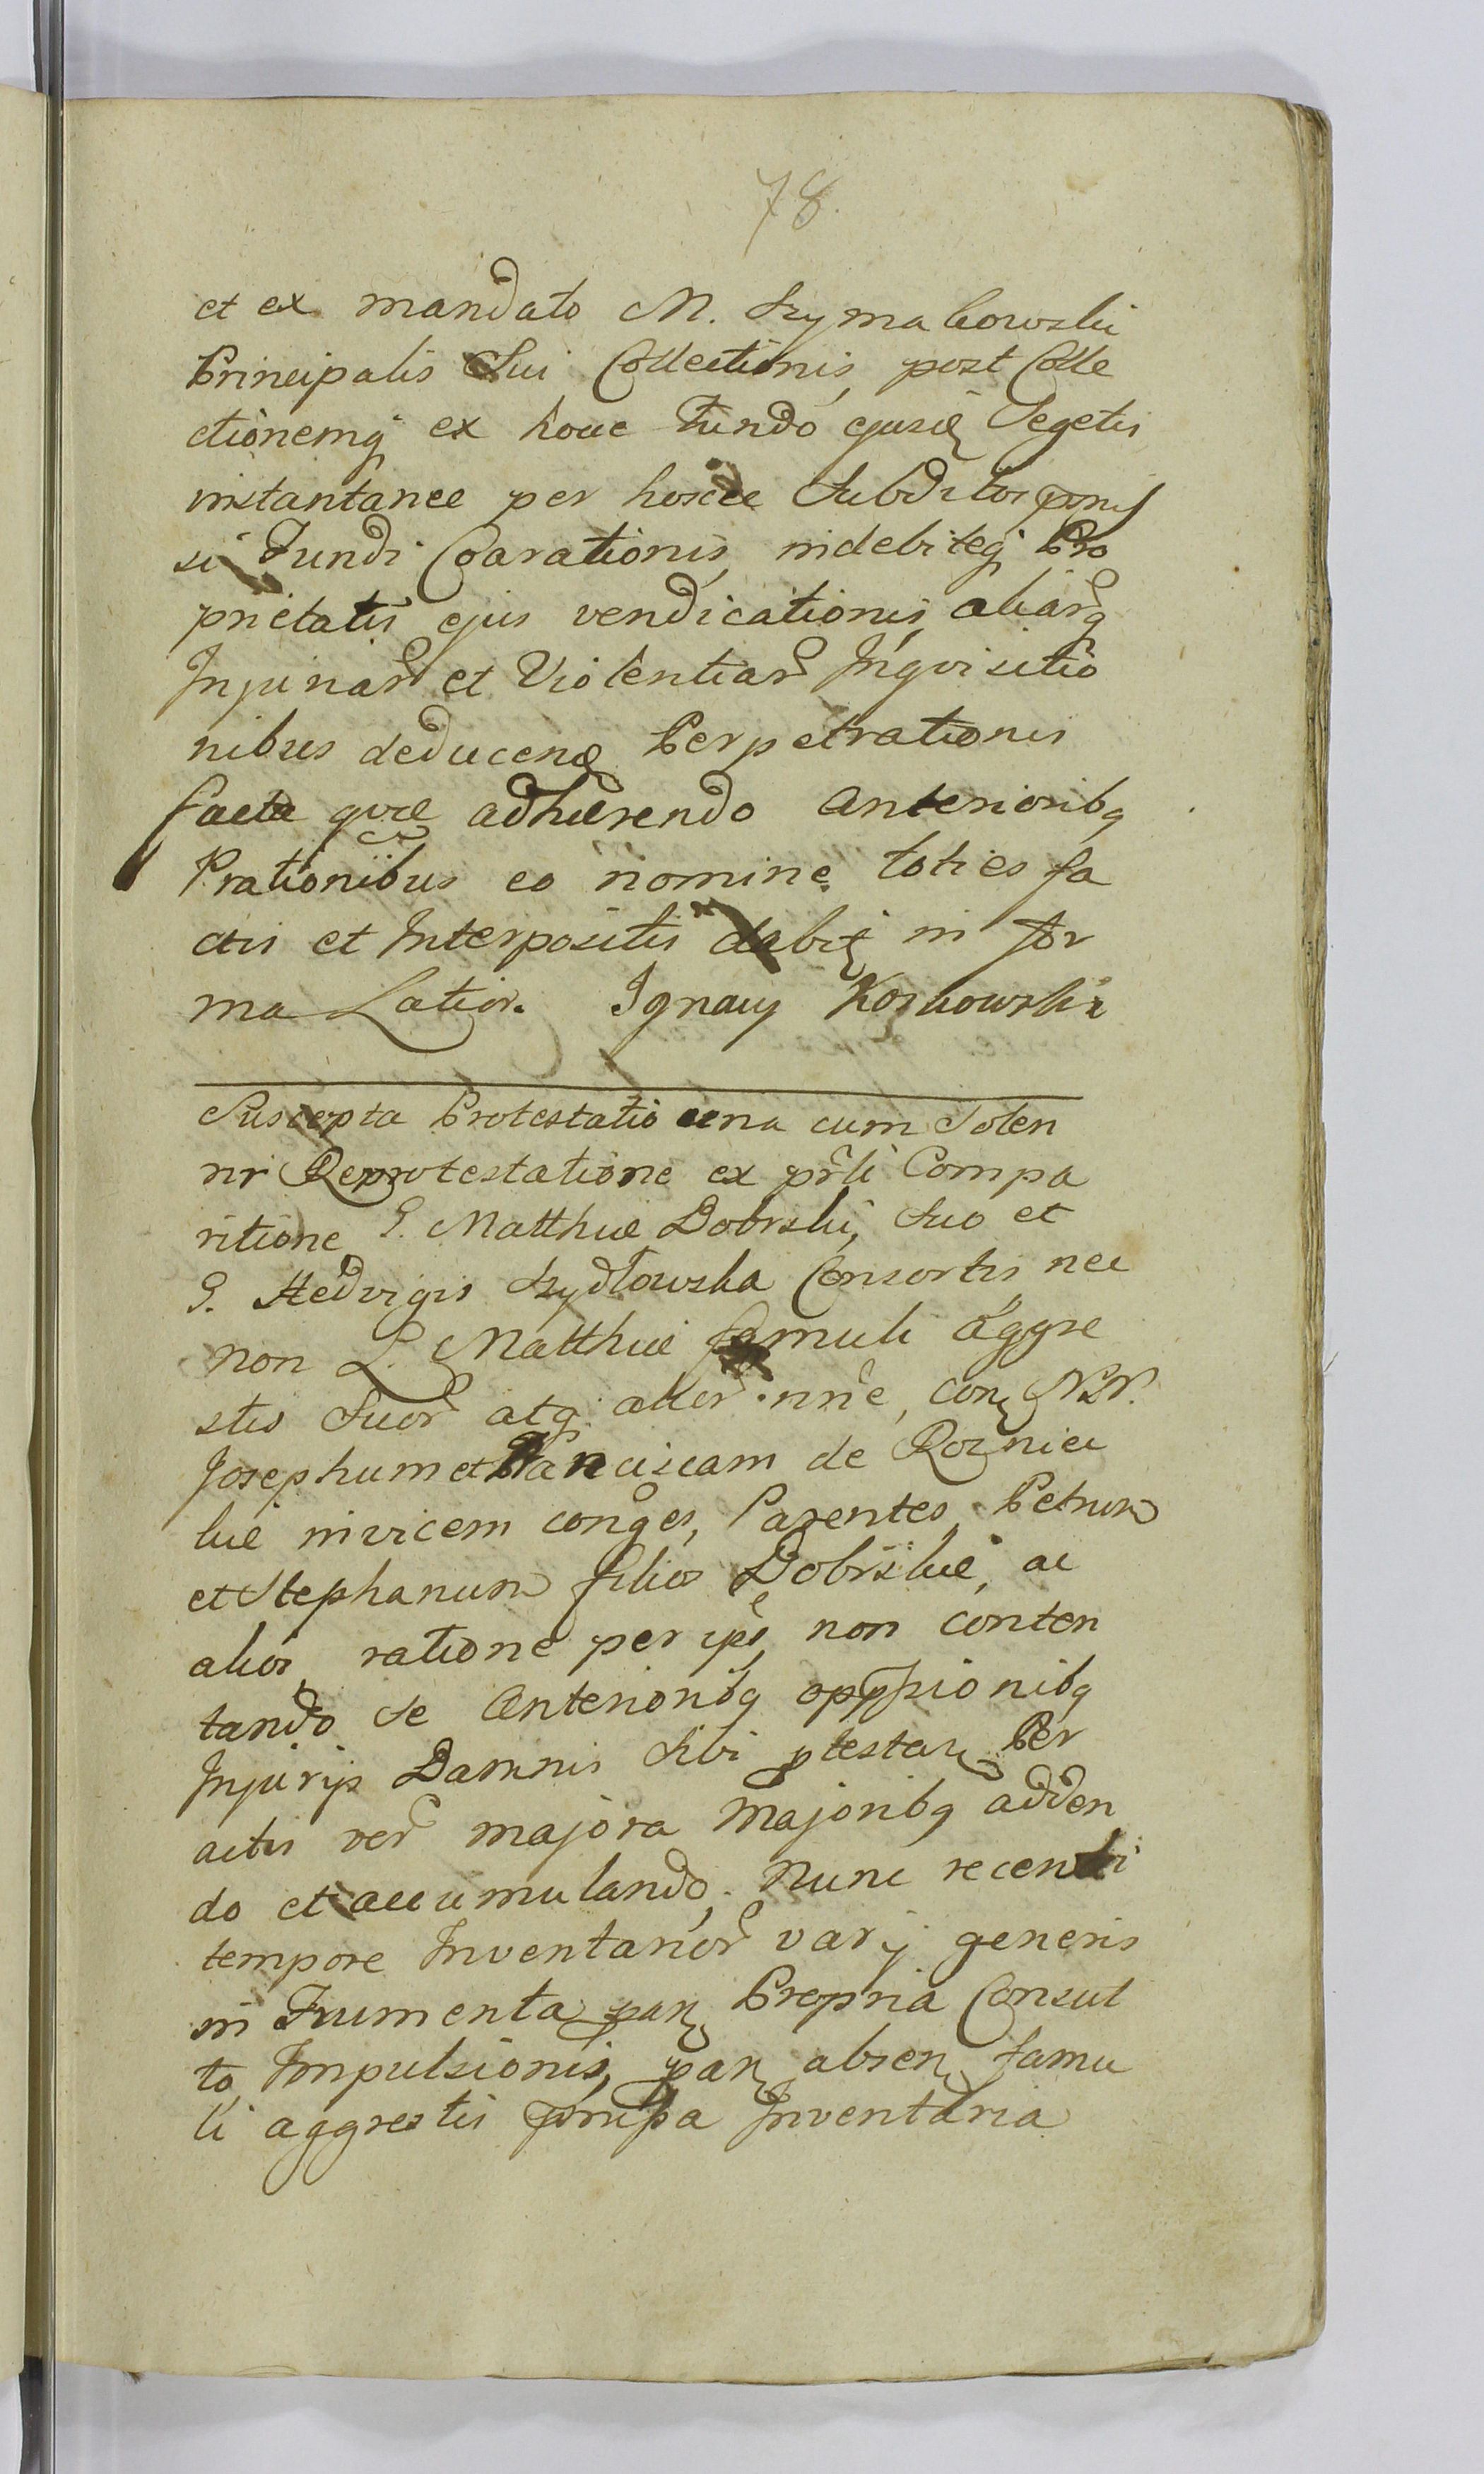 78.
et ex mandato M. Szymakowski
Principalis Sui Collectionis, post Colle
ctionemq ex hocce Fundo ejusd Segetis
instantanee per hosce Subditos
si Fundi Coarationis, indebiteq Pro
prietatis ejus vendicationis, aliarq
Injuriar et Violentiar Inqvisitio
nibus deducend Perpetrationis
facta qvæ adhærendo Anterioribq
Prationibus eo nomine toties fa
ctis et Interpositis dabit in for
ma Latior. Ignacy Koskowski
Suscepta Protestatio una cum Solen
ni Reprotestatione ex prli Compa
ritione G. Matthiæ Dobrski, Suo et
G. Hedvigis Szydłowska Consortis, nec
non L. Matthiæ famuli aggre
stis Suor atq alior nne, con NN.
Josephum et Franciscam de Roznice
kie invicem conges, Parentes, Petrum
et Stephanum filios Dobrskie, ac
alios, ratione per ips, non conten
tando se Anterioribq oppssionibq
Injurijs Damnis Sibi ptestan Per
actis ver majora Majoribq adden
do et accumulando, Nunc recenti
tempore Inventarior varij generis
in Frumenta pan Propria Consul
to Impulsionis, pan absen famu
li aggrestis Inventaria